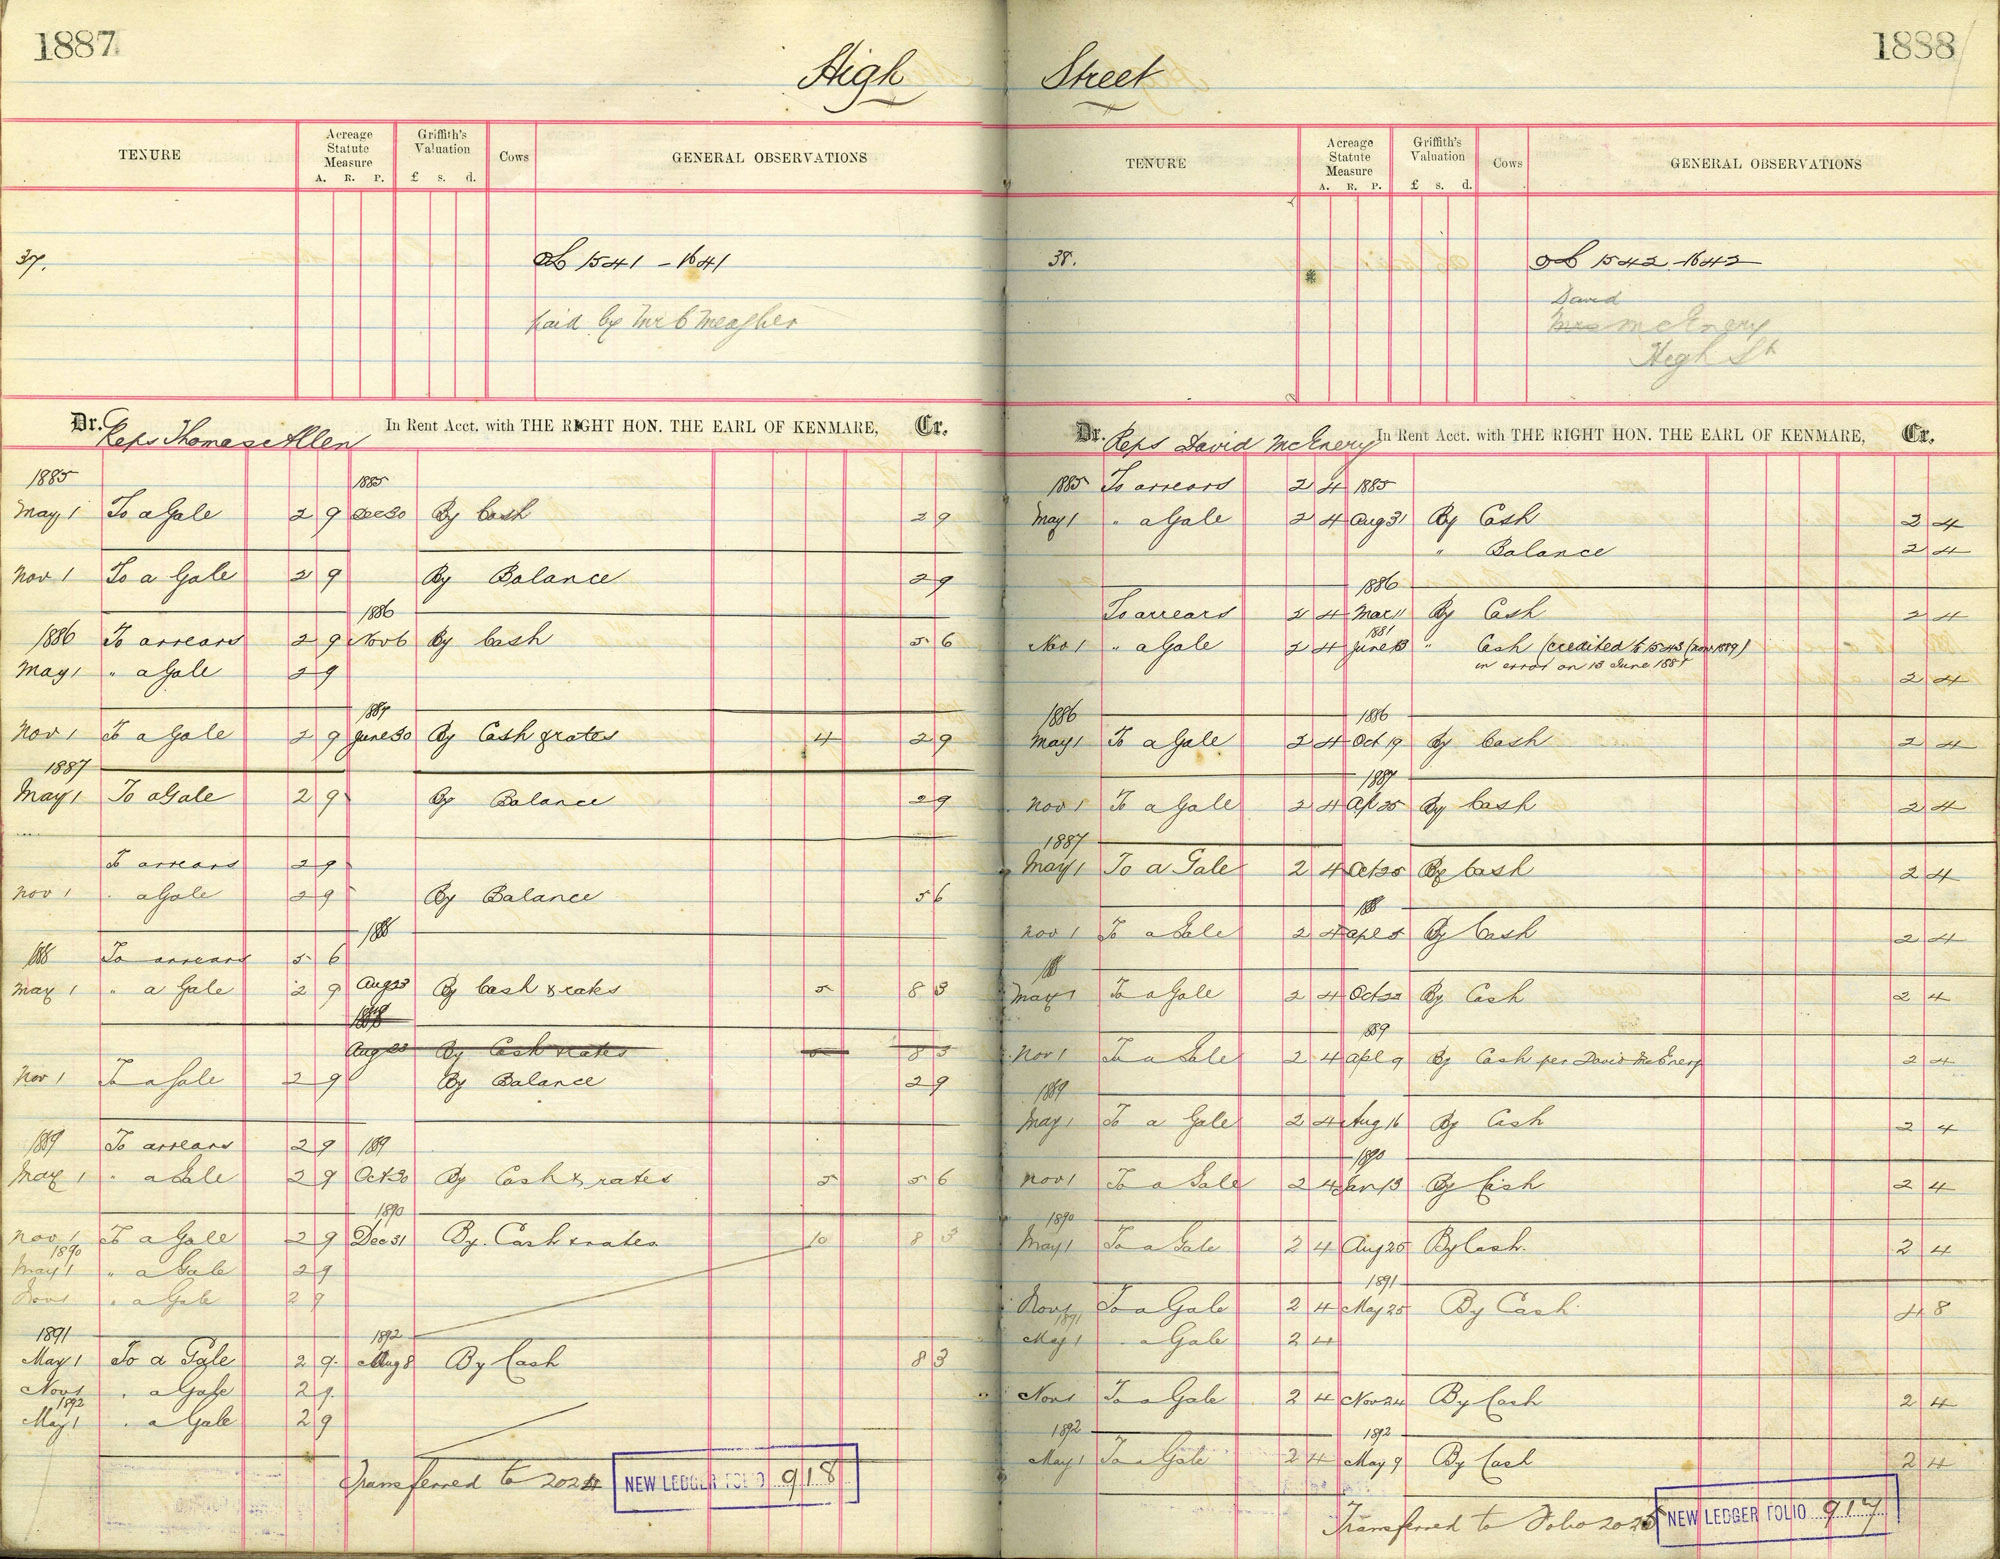 1887
High
TENURE
Acreage Statute Measure
A. R. P.
Griffith's Valuation
£ s. d.
Cows
GENERAL OBSERVATIONS
37.
OL 1541 - 1641
paid by Mr C Meagher
Dr. Reps Thomas Allen In Rent Acct. with THE RIGHT HON. THE EARL OF KENMARE, Cr.
1885 1885
May 1 To a Gale 2 9 Dec 30 By Cash 2 9
Nov 1 To a Gale 2 9 By Balance 2 9
1886
1886 To arrears 2 9 Nov 6 By Cash 5 6
May 1 " a Gale 2 9
1887
Nov 1 To a Gale 2 9 June 30 By Cash & rates 4 2 9
1887
May 1 To a Gale 2 9 By Balance 2 9
To arrears 2 9
Nov 1 " a Gale 2 9 By Balance 5 6
1888
1888 To arrears 5 6
May 1 " a Gale 2 9 Aug 23 By Cash & rates 5 8 3
1888
Aug 23 By Cash & rates 5 8 3
Nov 1 To a Gale 2 9 By Balance 2 9
1889 To arrears 2 9 1889
May 1 " a Gale 2 9 Oct 30 By Cash & rates 5 5 6
1890
Nov 1 To a Gale 2 9 Dec 31 By Cash & rates 10 8 3
1890
May 1 " a Gale 2 9
Nov 1 " a Gale 2 9
1891 1892
May 1 To a Gale 2 9 Aug 8 By Cash 8 3
Nov 1 " a Gale 2 9
1892
May 1 " a Gale 2 9
Transferred to 2024 NEW LEDGER FOLIO 918
1888
Street
TENURE
Acreage Statute Measure
A. R. P.
Griffith's Valuation
£ s. d.
Cows
GENERAL OBSERVATIONS
38.
OL 1542 - 1642
David
Mrs McEnery
High St
Dr. Reps David McEnery In Rent Acct. with THE RIGHT HON. THE EARL OF KENMARE, Cr.
1885 To arrears 2 4 1885
May 1 " a Gale 2 4 Aug 31 By Cash 2 4
" Balance 2 4
1886
To arrears 2 4 Mar 11 By Cash 2 4
1881
Nov 1 " a Gale 2 4 June 13 " Cash (credited to 1543 (now 1889)
in error on 13 June 1881
2 4
1886 1886
May 1 To a Gale 2 4 Oct 19 By Cash 2 4
1887
Nov 1 To a Gale 2 4 Apl 25 By Cash 2 4
1887
May 1 To a Gale 2 4 Oct 25 By Cash 2 4
1888
Nov 1 To a Gale 2 4 Apl 5 By Cash 2 4
1888
May 1 To a Gale 2 4 Oct 22 By Cash 2 4
1889
Nov 1 To a Gale 2 4 Apl 9 By Cash per David McEnery 2 4
1889
May 1 To a Gale 2 4 Aug 16 By Cash 2 4
1890
Nov 1 To a Gale 2 4 Jan 13 By Cash 2 4
1890
May 1 To a Gale 2 4 Aug 25 By Cash. 2 4
1891
Nov 1 To a Gale 2 4 May 25 By Cash 4 8
1891
May 1 " a Gale 2 4
Nov 1 To a Gale 2 4 Nov 24 By Cash 2 4
1892 1892
May 1 To a Gale 2 4 May 9 By Cash 2 4
Transferred to Folio 2025 NEW LEDGER FOLIO 917